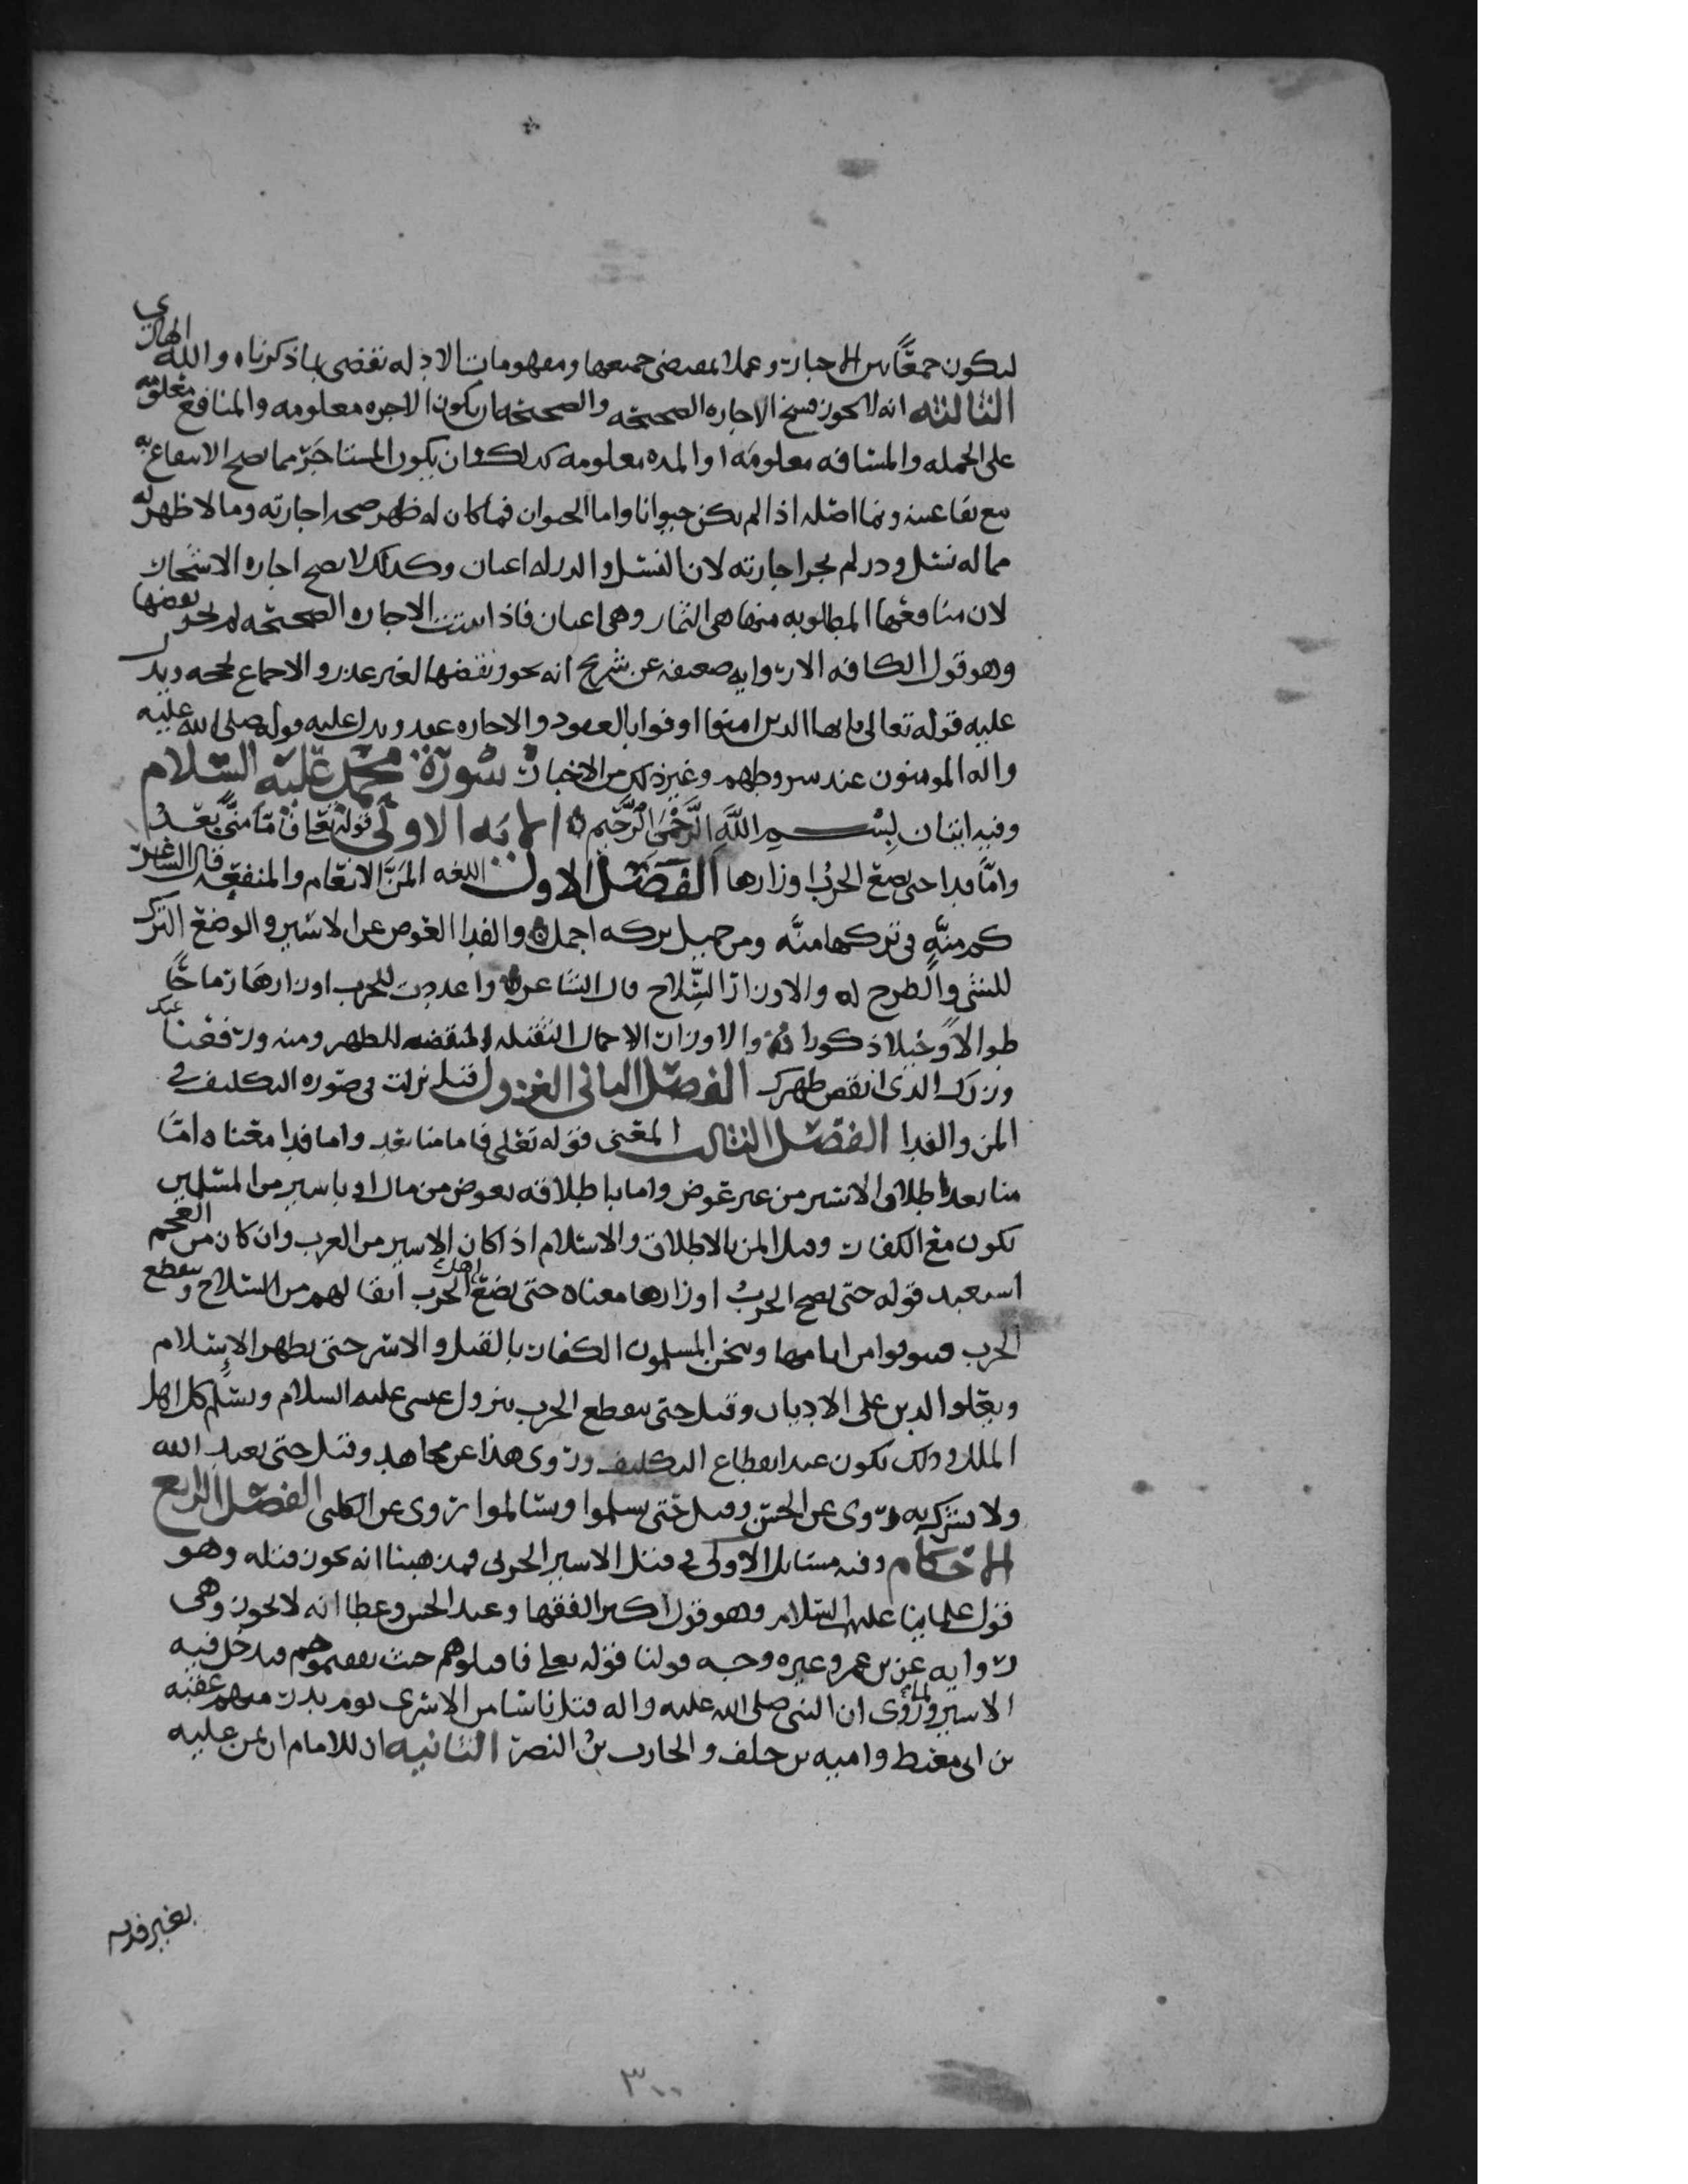 ليكون جمعًا بين الاخبار وعملا بمقتضى جميعها ومفهومات الادله تقضي بما ذكرناه والله الهادي
الثالثه انه لا يجوز فسخ الاجاره الصحيحه والصحيحه ان يكون الاجره معلومه والمنافع معلومه
على الجمله والمسافه معلومه او المده معلومه كذلك وان يكون المستاجر مما يصح الانتفاع به
مع بقا عينه ونما اصله اذا لم يكن حيوانا واما الحيوان فما كان له ظهر صحه اجارته وما لا ظهر له
مما له نسل ودر لم يجز اجارته لان النسل والدر له اعيان وكذلك لا يصح اجاره الاشجار
لان منافعها المطلوبه منها هي الثمار وهي اعيان فاذا ثبتت الاجاره الصحيحه لم يجز نقضها
وهو قول الكافه الا روايه ضعيفه عن شريح انه يجوز نقضها لغير عذر والاجماع يحجه ويدل
عليه قوله تعالى يايها الذين امنوا اوفوا بالعقود والاجاره عقد ويدل عليه قوله صلى الله عليه
واله المومنون عند شروطهم وغير ذلك من الاخبار سورة محمد عليه السلام
وفيه ايتان بِسْمِ اللَّهِ الرَّحْمَنِ الرَّحِيمِ الايه الاولى قوله تعالى فامّا منًّا بعدُ
وامّا فدا حتى تضع الحربُ اوزارها الفصل الاول اللغه المنّ الانعام والمنفعه قال الشاعر
كم منّهٍ في تركها منّه ومن جميل تركه اجمل والفدا العوض عن الاسير والوضع الترك
للشي والطرح له والاوزار السّلاح قال الشاعر واعددت للحرب اوزارها رماحًا
طوالاً وخيلا ذكورا والاوزار الاحمال الثقيله المنقضه للظهر ومنه ورفعنا عنك
وزرك الذي انقض ظهرك الفصل الثاني النزول قيل نزلت في صوره التكليف في
المن والفدا الفصل الثالث المعنى قوله تعلى فاما منا بعد واما فدا معناه امّا
منا بعد اطلاق الاسير من غير عوض واما باطلاقه بعوض من مال او باسير من المسلمين
يكون مع الكفار وقيل المن بالاطلاق والاسلام اذا كان الاسير من العرب وان كان من العجم
استعبد قوله حتى تضع الحربُ اوزارها معناه حتى تضع اهل الحرب اثقالهم من السلاح وينقطع
الحرب فيتوبوا من اثامها ويثخن المسلمون الكفار بالقتل والاسر حتى يظهر الاسلام
ويعلوا الدين على الاديان وقيل حتى ينقطع الحرب بنزول عيسى عليه السلام ويسلم كل اهل
الملل وذلك يكون عند انقطاع التكليف وروى هذا عن مجاهد وقيل حتى يعبد الله
ولا يشرك به روي عن الحسن وقيل حتى يسلموا ويسالموا روي عن الكلبي الفصل الرابع
الاحكام وفيه مسايل الاولى في قتل الاسير الحربي فمذهبنا انه يجوز قتله وهو
قول علماينا عليهم السلام وهو قول اكثر الفقها وعند الحسن وعطا انه لا يجوز وهي
روايه عن بن عمر وغيره وجه قولنا قوله تعلى فاقتلوهم حيث ثقفتموهم فيدخل فيه
الاسير ولما روي ان النبي صلى الله عليه واله قتل ناسا من الاسرى يوم بدر منهم عقبه
بن ابي معيط واميه بن خلف والحارث بن النضر الثانيه ان للامام ان يمن عليه
بغير فديه
٣٠٠